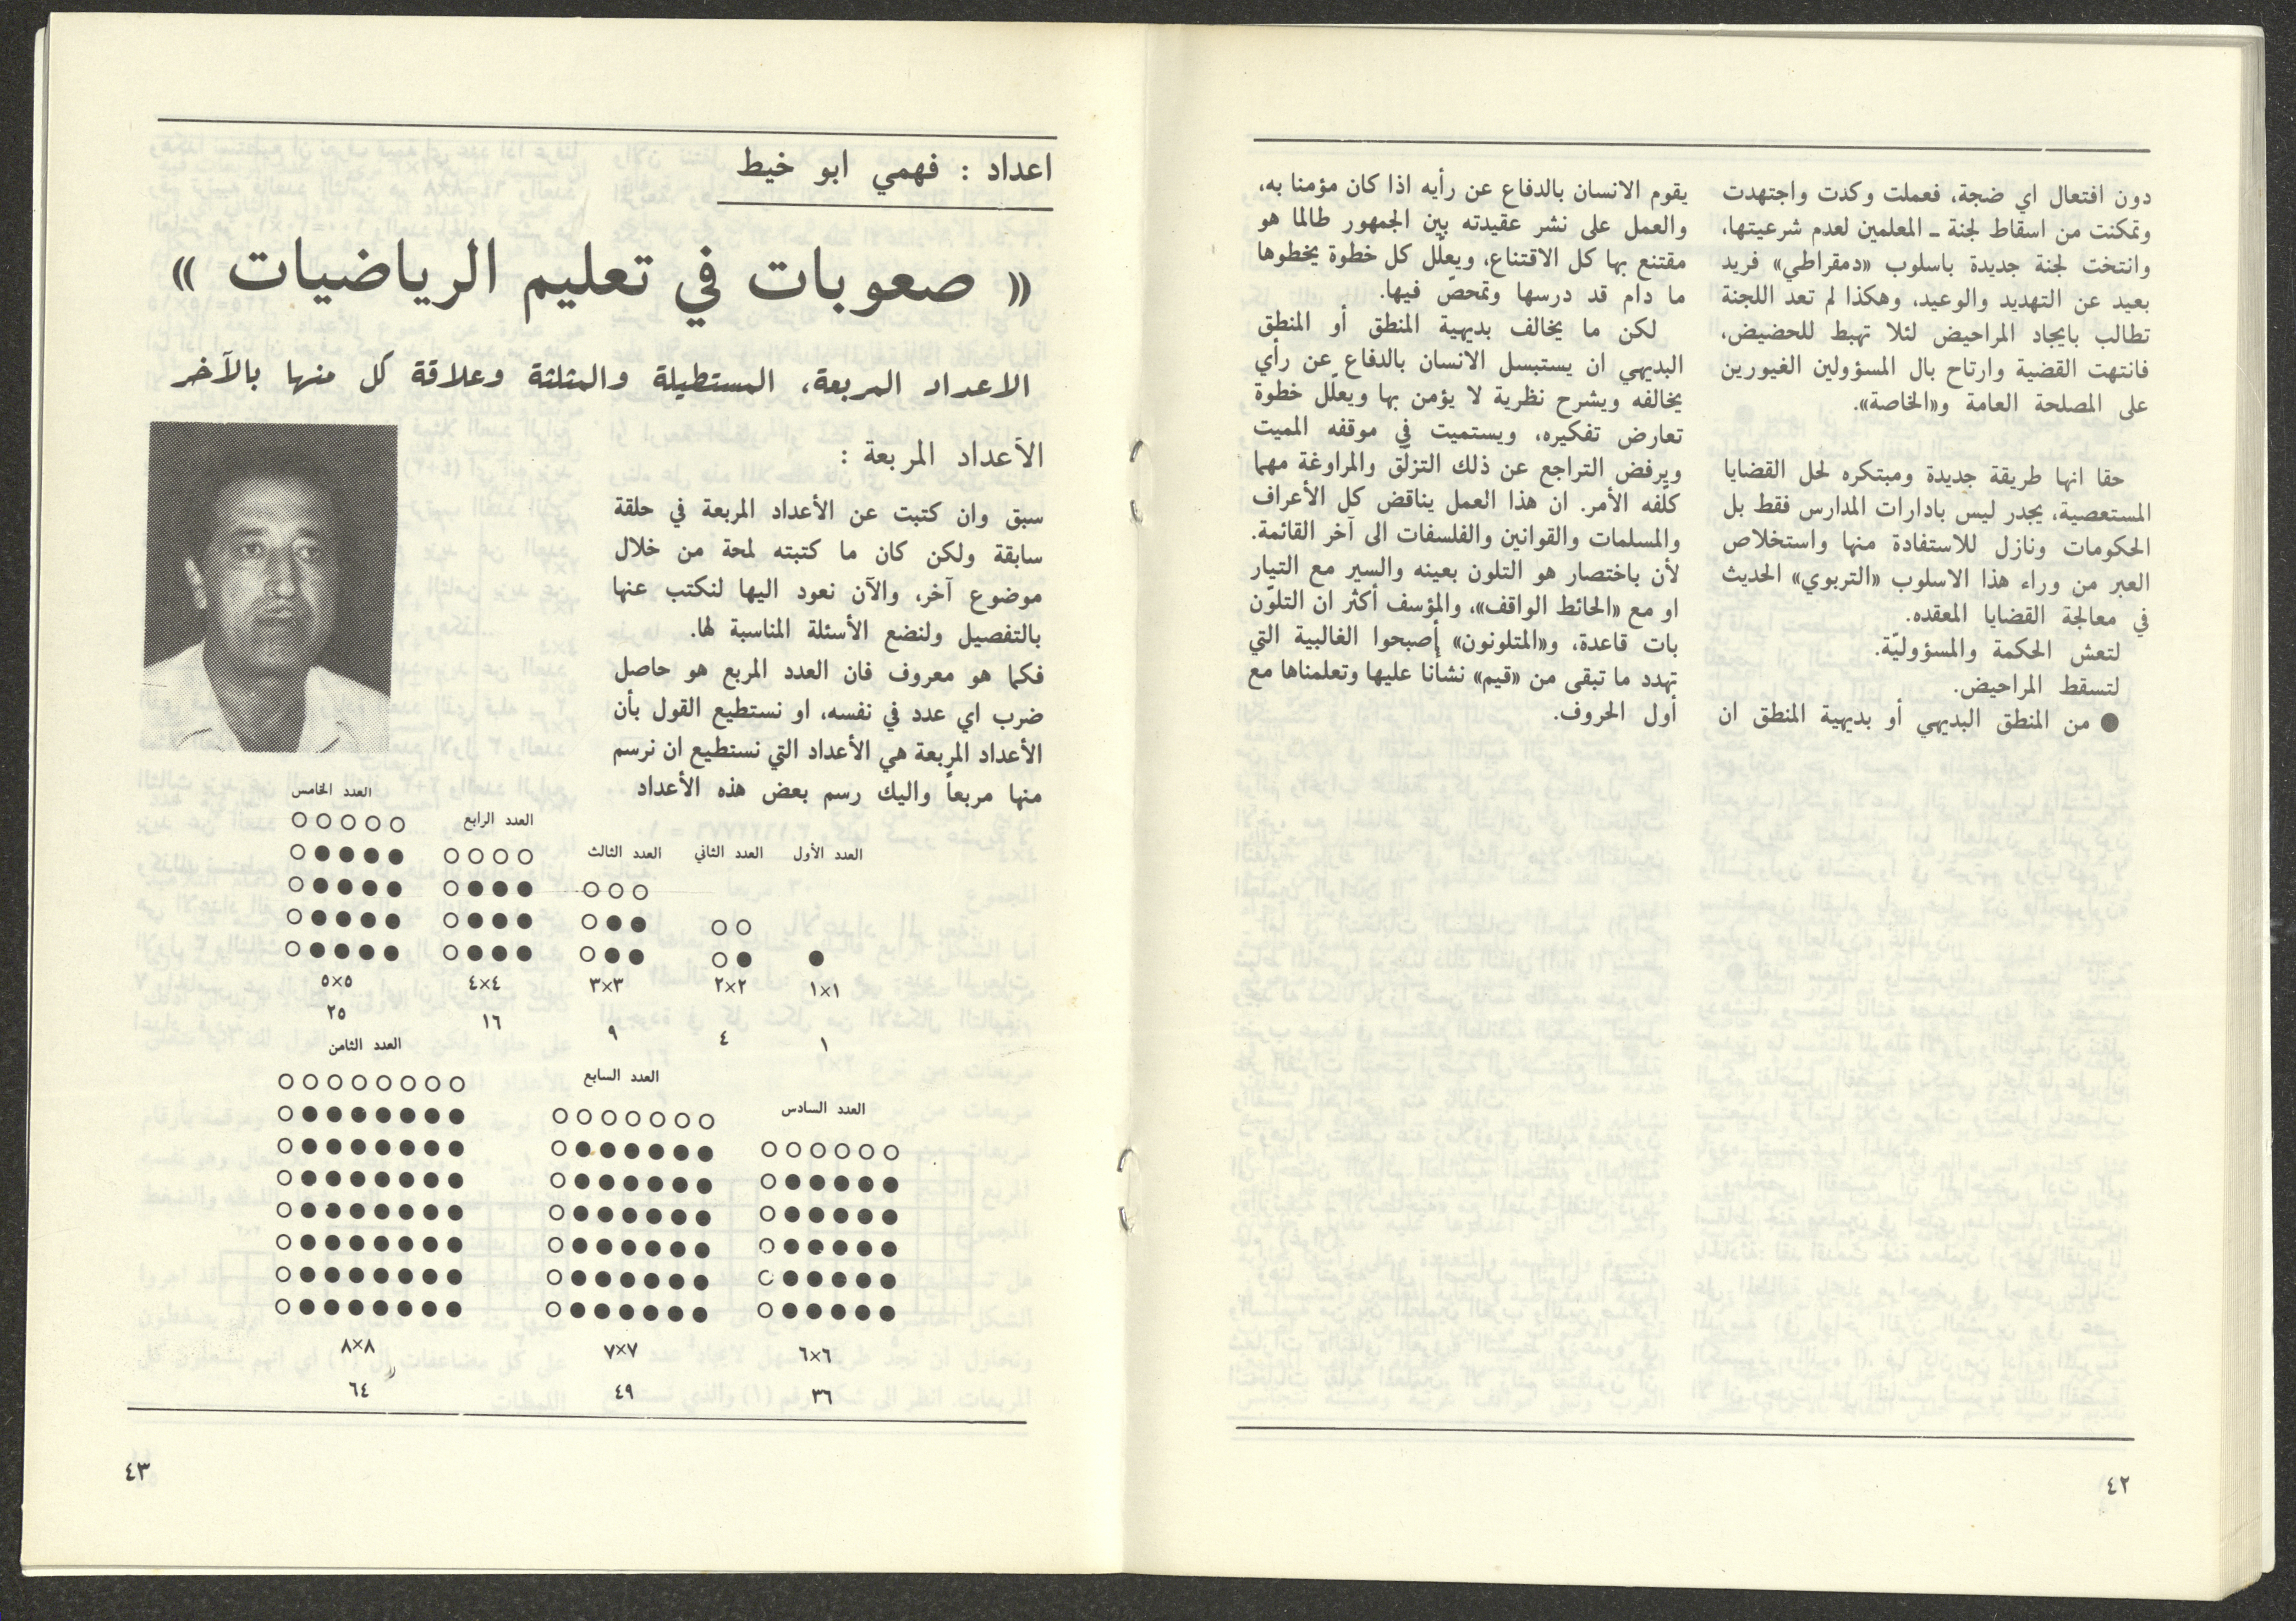 دون افتعال اي ضجة، فعملت وكدت واجتهدت
وتمكنت من اسقاط لجنة ـ المعلمين لعدم شرعيتها،
وانتخت لجنة جديدة باسلوب «دمقراطي» فريد
بعيد عن التهديد والوعيد، وهكذا لم تعد اللجنة
تطالب بايجاد المراحيض لئلا تهبط للحضيض،
فانتهت القضية وارتاح بال المسؤولين الغيورين
على المصلحة العامة و«الخاصة».
حقا انها طريقة جديدة ومبتكره لحل القضايا
المستعصية، يجدر ليس بادارات المدارس فقط بل
الحكومات ونازل للاستفادة منها واستخلاص
العبر من وراء هذا الاسلوب «التربوي» الحديث
في معالجة القضايا المعقده.
لتعش الحكمة والمسؤوليّة.
لتسقط المراحيض.
● من المنطق البديهي أو بديهية المنطق ان
يقوم الانسان بالدفاع عن رأيه اذا كان مؤمنا به،
والعمل على نشر عقيدته بين الجمهور طالما هو
مقتنع بها كل الاقتناع، ويعلّل كل خطوة يخطوها
ما دام قد درسها وتمحصّ فيها.
لكن ما يخالف بديهية المنطق أو المنطق
البديهي ان يستبسل الانسان بالدفاع عن رأي
يخالفه ويشرح نظرية لا يؤمن بها ويعلّل خطوة
تعارض تفكيره، ويستميت في موقفه المميت
ويرفض التراجع عن ذلك التزلّق والمراوغة مهما
كلفه الأمر. ان هذا العمل يناقض كل الأعراف
والمسلمات والقوانين والفلسفات الى آخر القائمة.
لأن باختصار هو التلون بعينه والسير مع التيار
او مع «الحائط الواقف»، والمؤسف أكثر ان التلوّن
بات قاعدة، و«المتلونون» أصبحوا الغالبية التي
تهدد ما تبقى من «قيم» نشأنا عليها وتعلمناها مع
أول الحروف.
٤٢
اعداد : فهمي ابو خيط
« صعوبات في تعليم الرياضيات »
الاعداد المربعة، المستطيلة والمثلثة وعلاقة كل منها بالآخر
الأعداد المربعة :
سبق وان كتبت عن الأعداد المربعة في حلقة
سابقة ولكن كان ما كتبته لمحة من خلال
موضوع آخر، والآن نعود اليها لنكتب عنها
بالتفصيل ولنضع الأسئلة المناسبة لها.
فكما هو معروف فان العدد المربع هو حاصل
ضرب اي عدد في نفسه، او نستطيع القول بأن
الأعداد المربعة هي الأعداد التي نستطيع ان نرسم
منها مربعاً واليك رسم بعض هذه الأعداد
العدد الأول العدد الثاني العدد الثالث العدد الرابع العدد الخامس
١×١ ٢×٢ ٣×٣ ٤×٤ ٥×٥
١ ٤ ٩ ١٦ ٢٥
العدد السادس العدد السابع العدد الثامن
٦×٦ ٧×٧ ٨×٨
٣٦ ٤٩ ٦٤
٤٣